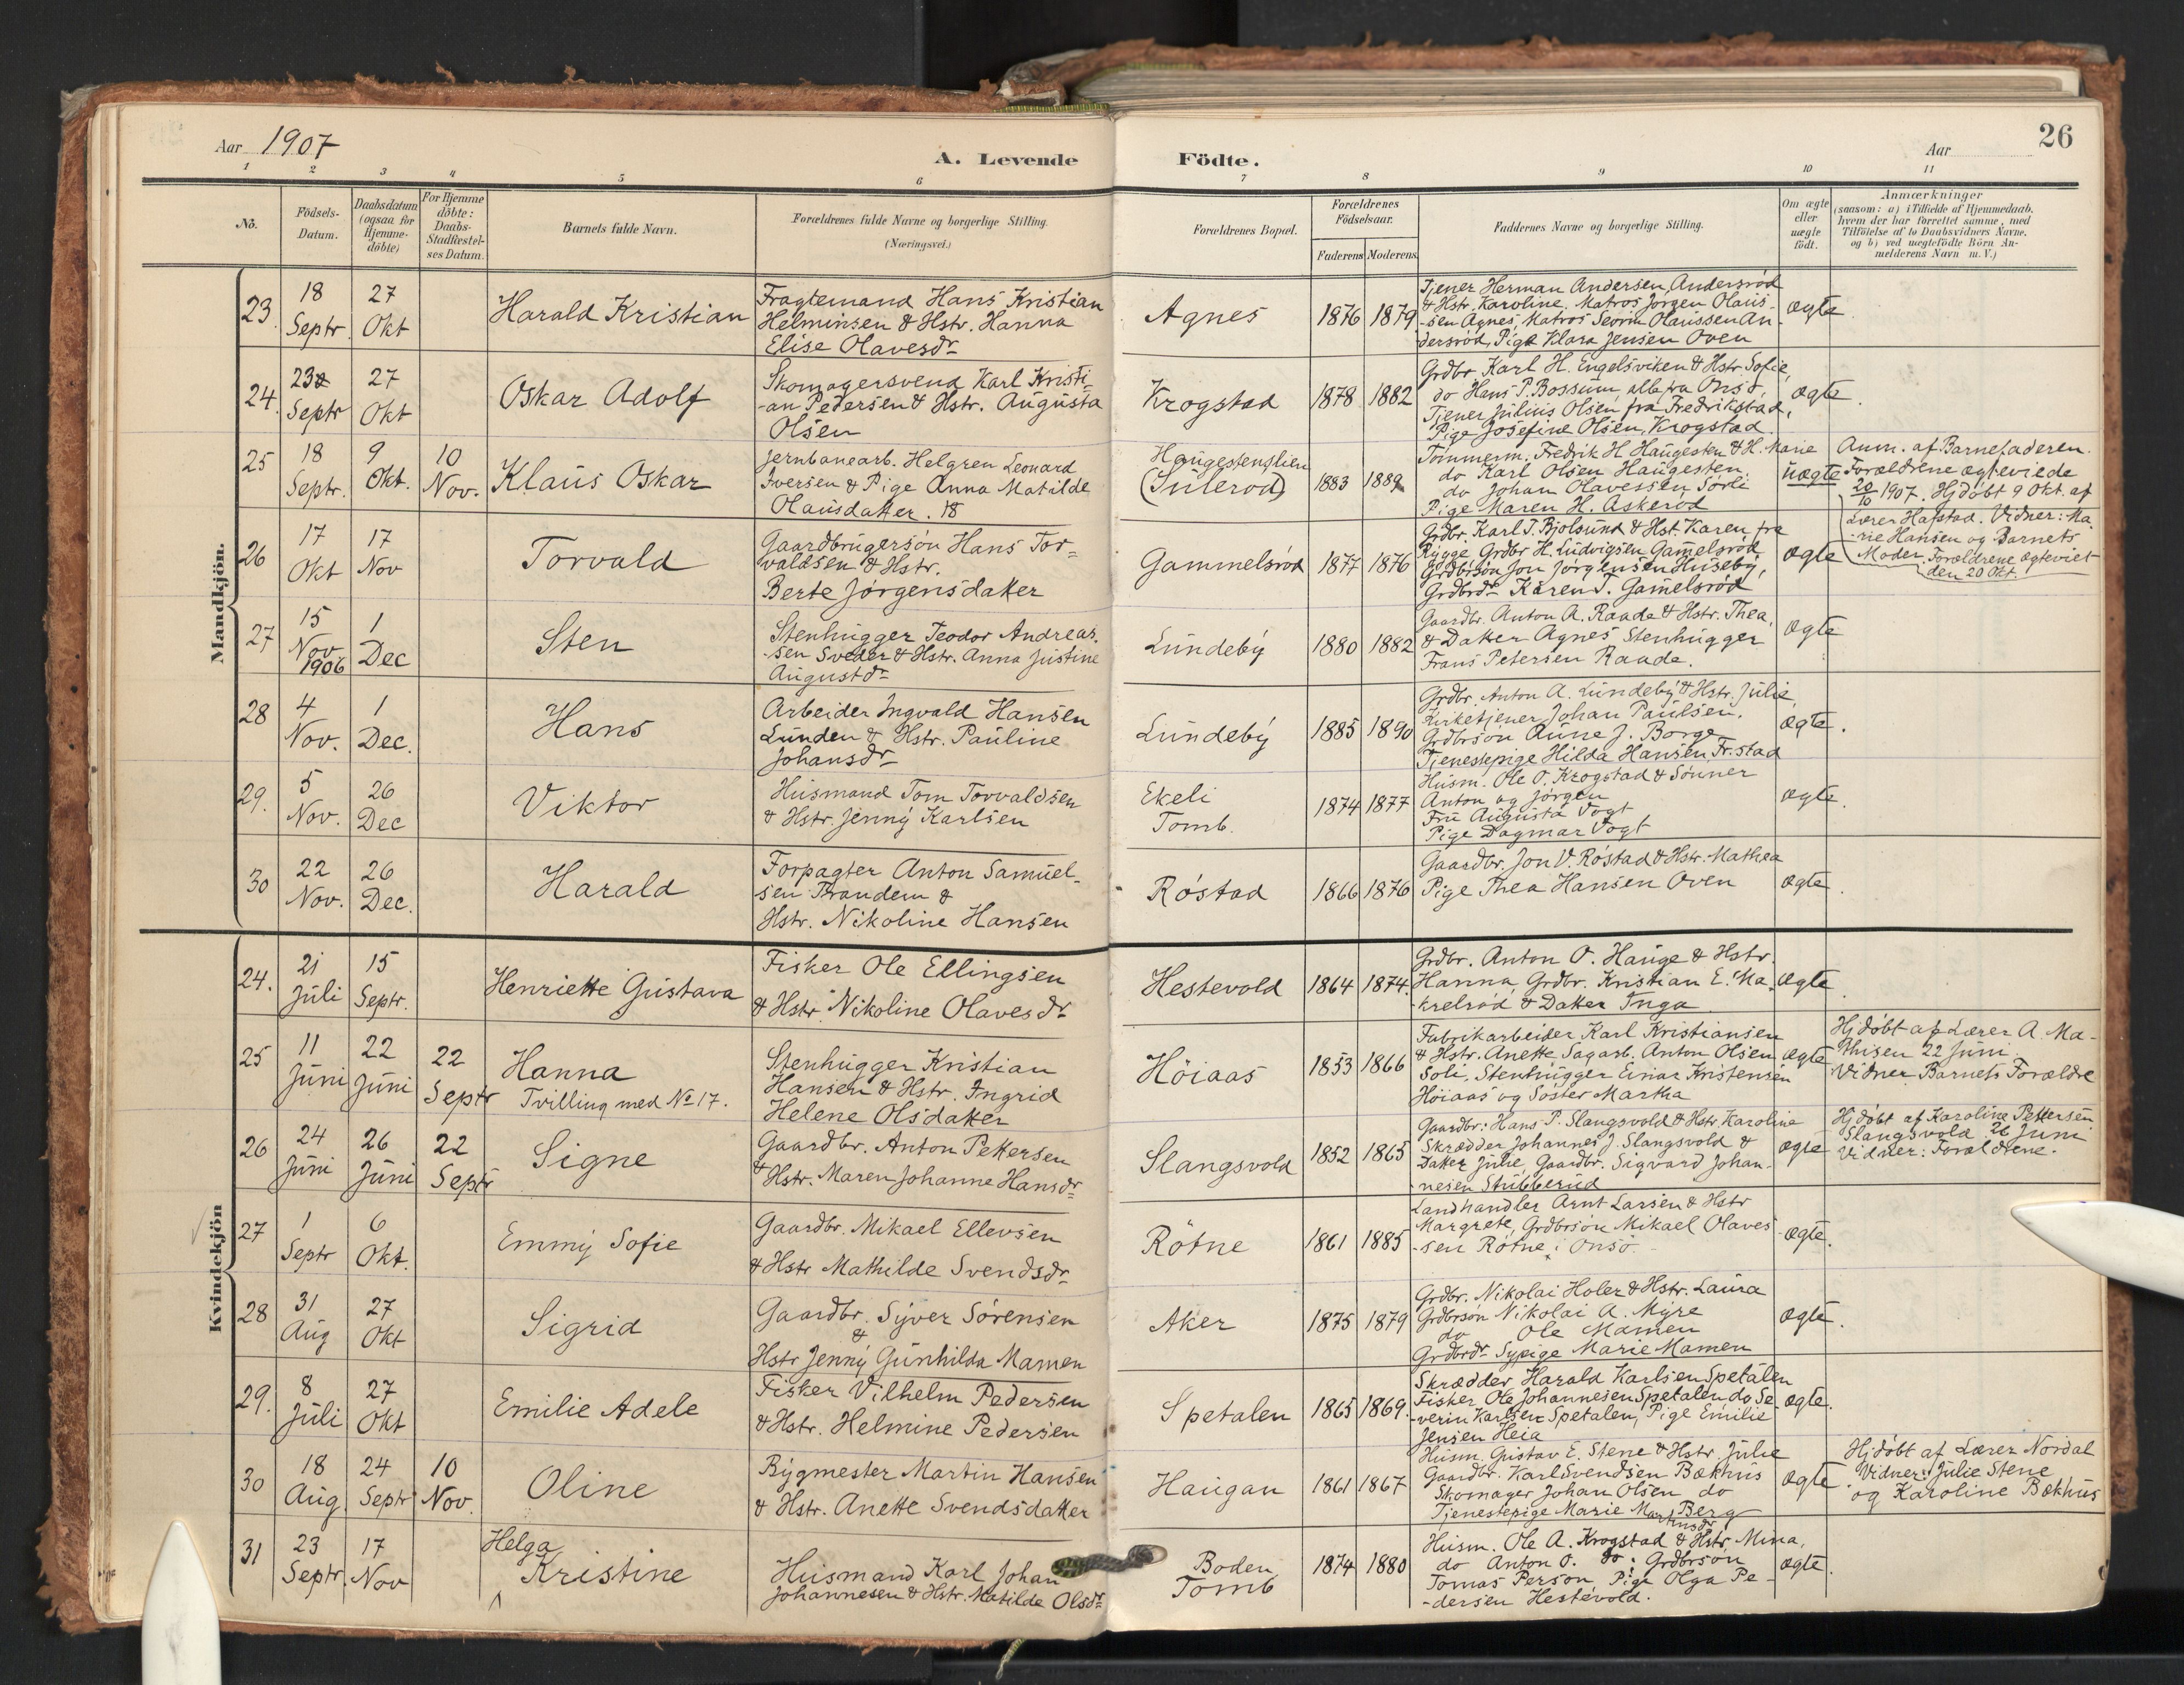 Aar 1907
A. Levende
Födte.
Aar
26
1 2 3 4 5 6 7 8 9 10 11
No.
Födsels-Datum.
Daabsdatum (ogsaa for Hjemmedöbte)
For Hjemme döbte: Daabs-Stadfæstelses Datum.
Barnets fulde Navn.
Forældrenes fulde Navne og borgerlige Stilling.
(Næringsvei.)
Forældrenes Bopæl.
Forældrenes Födselsaar.
Faderens Moderens
Faddernes Navne og borgerlige Stilling.
Om ægte eller uægte födt.
Anmærkninger
(saasom: a) i Tilfælde af Hjemmedaab.
hvem der har forrettet samme, med
Tilföielse af to Daabsvidners Navne.
og b) ved uægtefödte Börn An-
melderens Navn m.V.)
Mandkjön.
23. 18 Septr. 27 Okt
Harald Kristian
Fragtemand Hans Kristian
Helminsen & Hstr. Hanna
Elise Olavesdr
Agnes
1876 1879
Tjener Herman Andersen Andersrød
& Hstr. Karoline, Matros Jørgen Olaus-
-sen Agnes, Matros Severin Olaussen An-
dersrød, Pige Klara Jensen Oven
ægte
24. 23 Septr 27 Okt
Oskar Adolf
Skomagersvend Karl Kristi-
-an Pedersen & Hstr. Augusta
Olsen
Krogstad
1878 1882
Grdbr Karl H. Engelsviken & Hstr Sofie,
do Hans P. Bossum, alle fra Onsø,
Tjener Julius Olsen fra Fredrikstad,
Pige Josefine Olsen, Krogstad.
ægte.
25 18 Septr. 9 Okt. 10 Nov.
Klaus Oskar
Jernbanearb. Helgren Leonard
Iversen & Pige Anna Matilde
Olausdatter. 18
Haugestenslien
(Sulerød)
1883 1889
Tømmerm. Fredrik H Haugesten & H. Marie
do Karl Olsen Haugesten
do Johan Olavessen Sørli
Pige Maren H. Askerød
uægte
Anm. af Barnefaderen.
Forældrene ægteviede
20/10 1907. Hjdøbt 9 Okt. af
Lærer Hafstad. Vidner: Ma-
-rie Hansen og Barnets
Moder. Forældrene ægteviet
den 20 Okt.
26 17 Okt 17 Nov
Torvald
Gaardbrugersøn Hans Tor-
valdsen & Hstr.
Berte Jørgensdatter
Gammelsrød
1877 1876
Grdbr. Karl T. Bjolsund & Hst. Karen, fra
Rygge, Grdbr H. Ludvigsen Gamelsrød,
Grdbrsøn Jon Jørgensen Huseby,
Grdbrdr Karen T. Gamelsrød
ægte
27 15 Nov 1906 1 Dec
Sten
Stenhugger Teodor Andreas-
-sen Sveder & Hstr. Anna Justine
Augustdr
Lundeby
1880 1882
Gaardbr. Anton A. Raade & Hstr. Thea,
& Datter Agnes Stenhugger
Frans Petersen Raade.
ægte
28 4 Nov. 1 Dec.
Hans
Arbeider Ingvald Hansen
Lunden & Hstr. Pauline
Johansdr
Lundeby
1885 1890
Grdbr. Anton A. Lundeby & Hstr. Julie,
Kirketjener Johan Paulsen,
Grdbrsøn Aune J. Borge
Tjenestepige Hilda Hansen Fr.stad
ægte.
29. 5 Nov. 26 Dec
Viktor
Husmand Tom Torvaldsen
& Hstr. Jenny Karlsen
Ekeli
Tomb.
1874 1877
Husm. Ole O. Krogstad & Sønner
Anton og Jørgen
Fru Augusta Vogt
Pige Dagmar Vogt
ægte.
30 22 Nov. 26 Dec.
Harald
Forpagter Anton Samuel-
sen Trandem &
Hstr. Nikoline Hansen
Røstad
1866 1876
Gaardbr. Jon V. Røstad & Hstr. Mathea
Pige Thea Hansen Oven
ægte.
Kvindekjön
24. 21 Juli 15 Septr.
Henriette Gustava
Fisker Ole Ellingsen
& Hstr. Nikoline Olavesdr
Hestevold
1864 1874
Grdbr. Anton O. Hauge & Hstr.
Hanna, Grdbr. Kristian E. Ma-
-krelrød & Datter Inga
ægte
25 11 Juni 22 Juni 22 Septr
Hanna
Tvilling med No 17.
Stenhugger Kristian
Hansen & Hstr. Ingrid
Helene Olsdatter
Höiaas
1853 1866
Fabrikarbeider Karl Kristiansen
& Hstr. Anette Sagarb. Anton Olsen
Soli, Stenhugger Einar Kristensen
Höiaas og Søster Martha
ægte
Hjdøbt af Lærer A. Ma-
thisen 22 Juni.
Vidner Barnets Forældre
26 24 Juni 26 Juni 22 Septr
Signe
Gaardbr. Anton Pettersen
& Hstr. Maren Johanne Hansdr
Slangsvold
1852 1865
Gaardbr: Hans P. Slangsvold & Hstr Karoline
Skrædder Johannes J. Slangsvold &
Datter Julie, Gaardbr. Sigvard Johan-
nesen Stubberud
ægte
Hjdøbt af Karoline Pettersen
Slangsvold 26 Juni
Vidner: Forældrene.
27 1 Septr 6 Okt.
Emmy Sofie
Gaardbr. Mikael Ellevsen
& Hstr Mathilde Svendsdr
Rötne
1861 1885
Landhandler Arnt Larsen & Hstr
Margrete, Grdbrsøn Mikael Olaves-
-sen Rötne i Onsø.
ægte.
28 31 Aug 27 Okt
Sigrid
Gaardbr. Syver Sørensen
&
Hstr Jenny Gunhilda Mamen
Aker
1875 1879
Grdbr. Nikolai Holer & Hstr. Laura
Grdbrsøn Nikolai A. Myre
do Ole Mamen
Grdbrdr Sypige Marie Mamen
ægte.
29. 8 Juli 27 Okt
Emilie Adele
Fisker Vilhelm Pedersen
& Hstr. Helmine Pedersen
Spetalen
1865 1869
Skrædder Harald Karlsen Spetalen
Fisker Ole Johannesen Spetalen do Se-
-verin Karlsen Spetalen, Pige Emilie
Jensen Heia
ægte.
30 18 Aug. 24 Septr 10 Nov.
Oline
Bygmester Martin Hansen
& Hstr. Anette Svendsdatter
Haugan
1861 1867
Husm. Gustav E. Stene & Hstr. Julie
Gaardbr. Karl Svendsen Bækhus
Skomager Johan Olsen do
Tjenestepige Marie Martinsdr Berg
ægte
Hjdøbt af Lærer Nordal
Vidner: Julie Stene
og Karoline Bækhus
31 23 Septr. 17 Nov
Helga
Kristine
Husmand Karl Johan
Johannesen & Hstr. Matilde Olsdr
Boden
Tomb
1874 1880
Husm. Ole A. Krogstad & Hstr Mina,
do Anton O. do: Grdbrsøn
Tomas Person Pige Olga Pe-
-dersen Hestevold.
ægte.